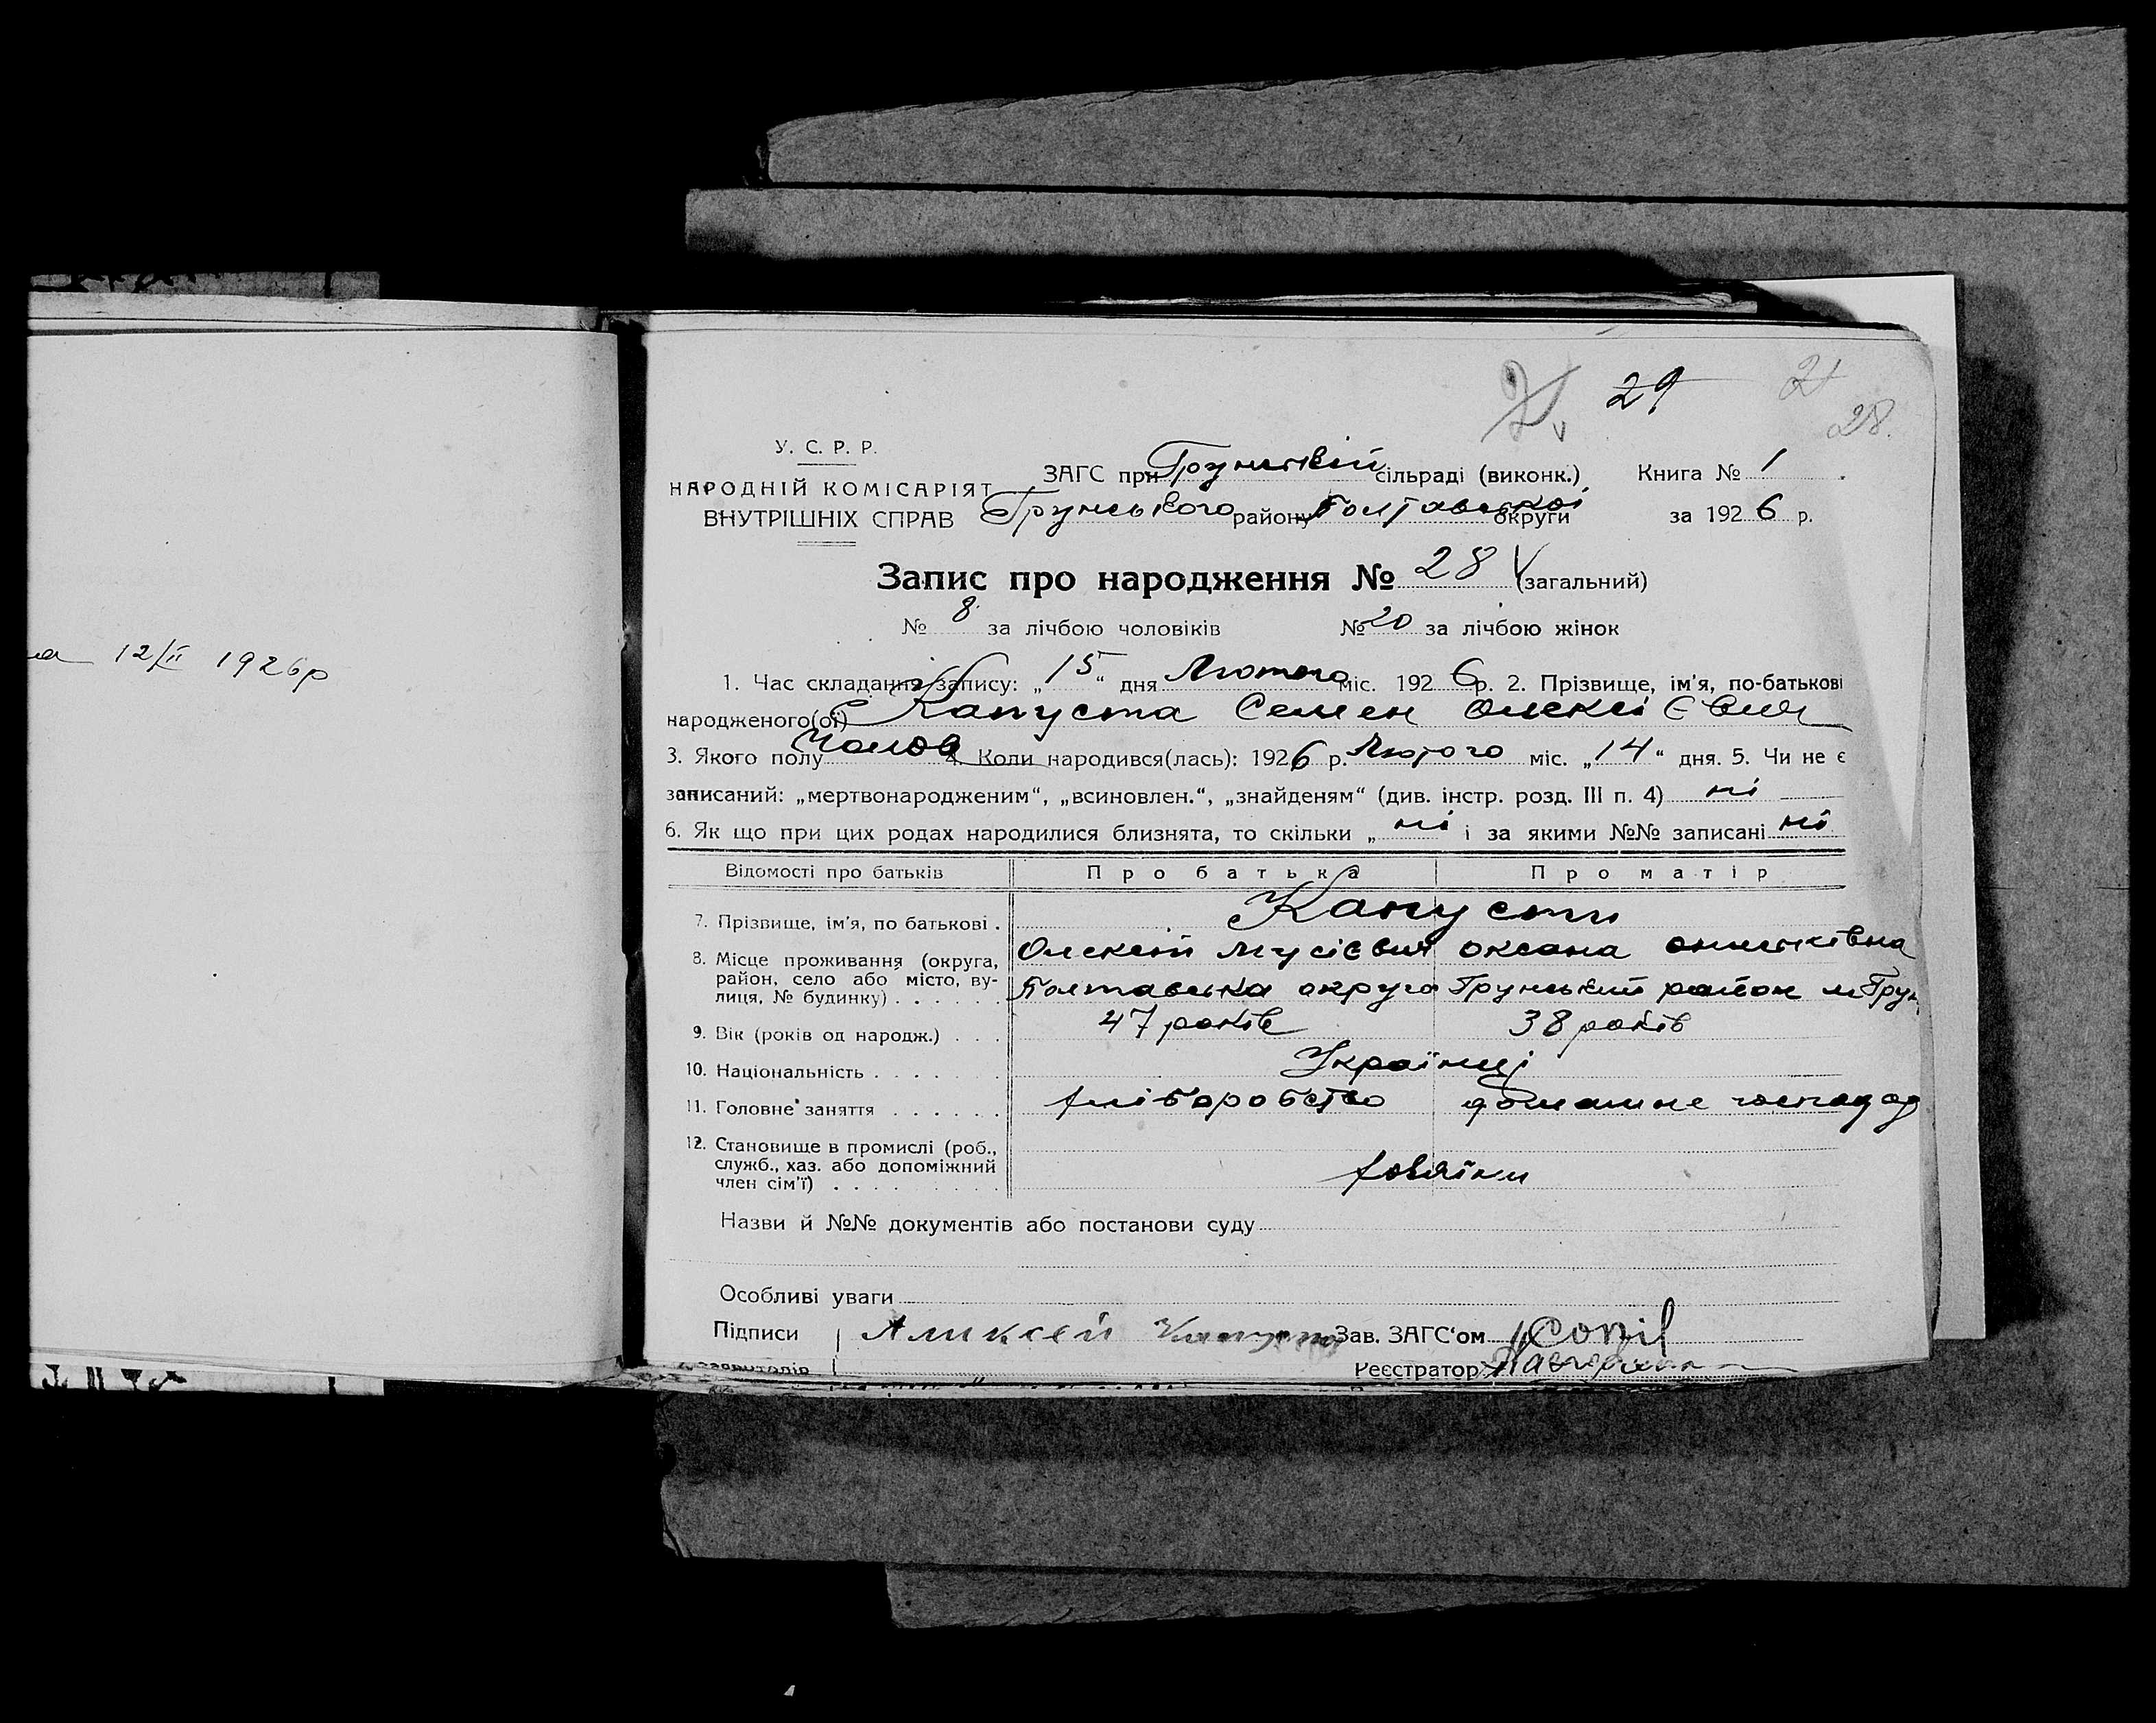 29 21
28.
У. С. Р. Р.
НАРОДНІЙ КОМІСАРІЯТ
ВНУТРІШНІХ СПРАВ
ЗАГС при Грунській сільраді (виконк.) Книга № 1
Грунського району Полтавської округи за 1926 р.
Запис про народження № 28 (загальний)
№ 8 за лічбою чоловіків № 20 за лічбою жінок
а 12/II 1926р
1. Час складання запису: „15“ дня Лютого міс. 1926 р. 2. Прізвище, ім'я, по-батькові
народженого(ої) Капуста Семен Олексієвич
3. Якого полу Чолов 4. Коли народився(лась): 1926 р. Лютого міс. „14“ дня. 5. Чи не є
записаний: „мертвонародженим“, „всиновлен.“, „знайденям“ (див. інстр. розд. III п. 4) ні
6. Як що при цих родах народилися близнята, то скільки „ ні і за якими №№ записані ні
Відомості про батьків Про батька Про матір
7. Прізвище, ім'я, по батькові . Капусти
Олексій Мусієвич Оксана
8. Місце проживання (округа,
район, село або місто, ву-
лиця, № будинку) . . . . . . Полтавська округа Грунський район м Грун
9. Вік (років од народж.) . . . 47 років 38 років
10. Національність . . . . . . . Українці
11. Головне заняття . . . . . . хліборобство домашне господар
12. Становище в промислі (роб.,
служб., хаз. або допоміжний
член сім'ї) . . . . . . . . . хазяїни
Назви й №№ документів або постанови суду
Особливі уваги
Підписи Аликсей Капуста Зав. ЗАГС'ом
заявителів Реєстратор